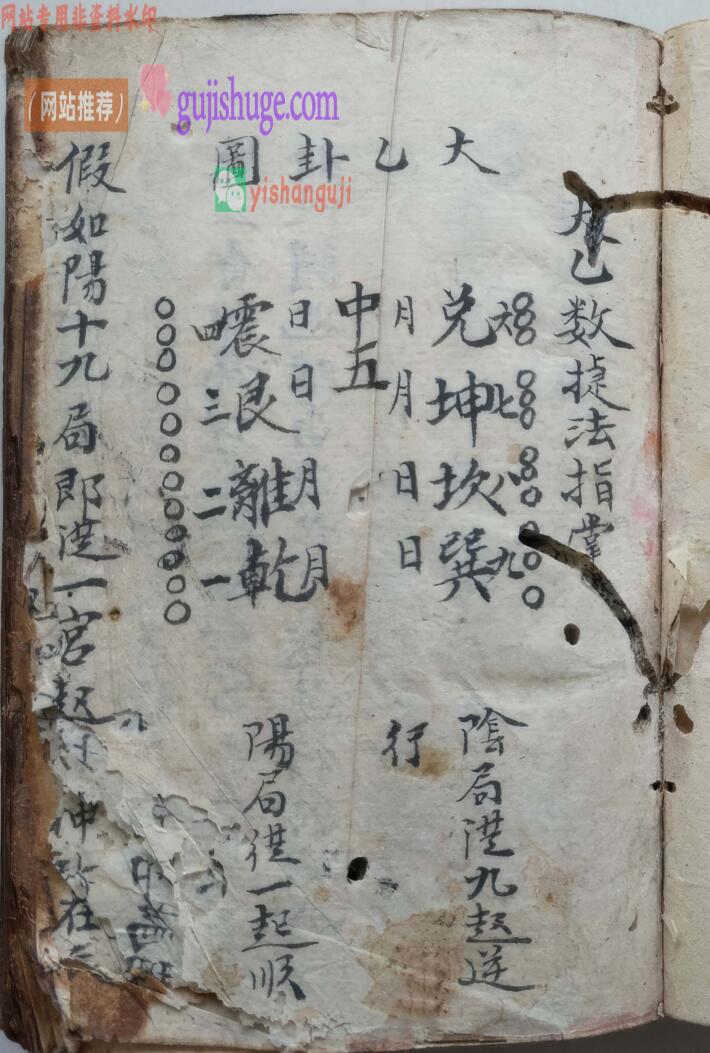 网站专用非资料水印
（网站推荐）
gujishuge.com
yishanguji
太乙数捷法指掌
大乙卦圖
兌六
坤七
坎八
巽九
月月日日
中五
日日月月
震四
艮三
離二
乾一
陰局從九起逆
行
陽局從一起順
假如陽十九局即從一宮起
在